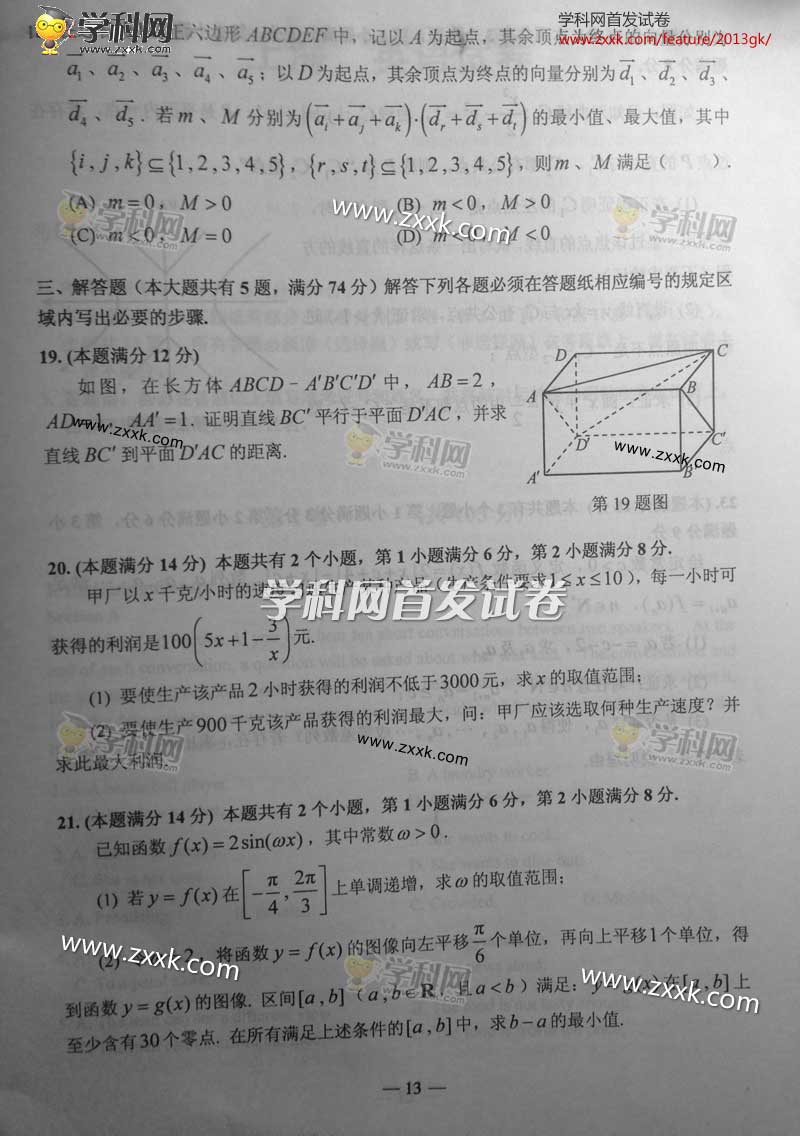 学科网首发试卷
www.zxxk.com/feature/2013gk/
学科网
www.zxxk.com
正六边形 ABCDEF 中，记以 A 为起点，其余顶点为终点的向量分别为
a₁、a₂、a₃、a₄、a₅；以 D 为起点，其余顶点为终点的向量分别为 d₁、d₂、d₃、
d₄、d₅．若 m、M 分别为 (aᵢ+aⱼ+aₖ)·(dᵣ+dₛ+dₜ) 的最小值、最大值，其中
{i,j,k}⊆{1,2,3,4,5}，{r,s,t}⊆{1,2,3,4,5}，则 m、M 满足（ ）.
(A) m=0，M>0 (B) m<0，M>0
(C) m<0，M=0 (D) m<0，M<0
学科网
www.zxxk.com
学科网
www.zxxk.com
三、解答题（本大题共有 5 题，满分 74 分）解答下列各题必须在答题纸相应编号的规定区
域内写出必要的步骤.
19. (本题满分 12 分)
如图，在长方体 ABCD－A'B'C'D' 中，AB=2，
AD=1，AA'=1．证明直线 BC' 平行于平面 D'AC，并求
直线 BC' 到平面 D'AC 的距离.
D C A B D' C' A' B'
第 19 题图
www.zxxk.com
学科网
www.zxxk.com
www.zxxk.com
20. (本题满分 14 分) 本题共有 2 个小题，第 1 小题满分 6 分，第 2 小题满分 8 分.
甲厂以 x 千克/小时的（生产条件要求 1≤x≤10），每一小时可
学科网首发试卷
获得的利润是 100(5x+1−3/x) 元.
(1) 要使生产该产品 2 小时获得的利润不低于 3000 元，求 x 的取值范围；
(2) 要使生产 900 千克该产品获得的利润最大，问：甲厂应该选取何种生产速度？并
求此最大利润.
学科网
www.zxxk.com
www.zxxk.com
学科网
www.zxxk.com
21. (本题满分 14 分) 本题共有 2 个小题，第 1 小题满分 6 分，第 2 小题满分 8 分.
已知函数 f(x)=2sin(ωx)，其中常数 ω>0.
(1) 若 y=f(x) 在 [−π/4, 2π/3] 上单调递增，求 ω 的取值范围；
(2) 2，将函数 y=f(x) 的图像向左平移 π/6 个单位，再向上平移 1 个单位，得
到函数 y=g(x) 的图像. 区间 [a,b]（a,b∈R，且 a<b）满足：y=g(x) 在 [a,b] 上
至少含有 30 个零点. 在所有满足上述条件的 [a,b] 中，求 b−a 的最小值.
www.zxxk.com
学科网
www.zxxk.com
www.zxxk.com
— 13 —